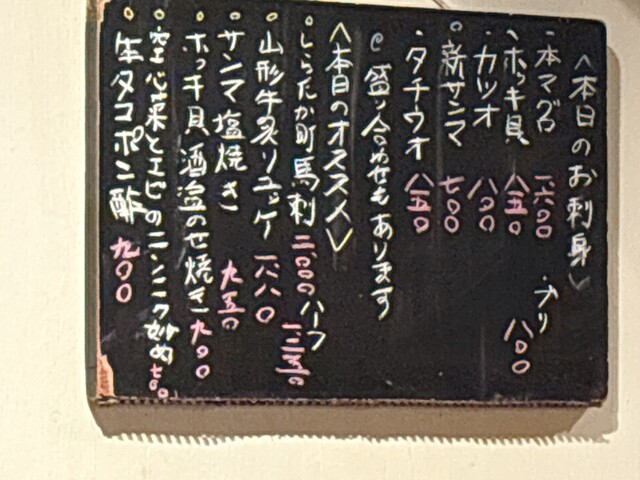 〈本日のお刺身〉
・本マグロ 一、六〇〇
・ブリ 八〇〇
・ホッキ貝 八五〇
・カツオ 八〇〇
・新サンマ 七〇〇
・タチウオ 八五〇
盛り合わせもあります
〈本日のオススメ〉
・しらたか町馬刺 二、〇〇〇 ハーフ 一、三五〇
・山形牛炙りユッケ 一、八八〇
・サンマ塩焼き 九五〇
・ホッキ貝酒盗のせ焼き 九〇〇
・空心菜とエビのニンニク炒め 七〇〇
・生タコポン酢 九〇〇